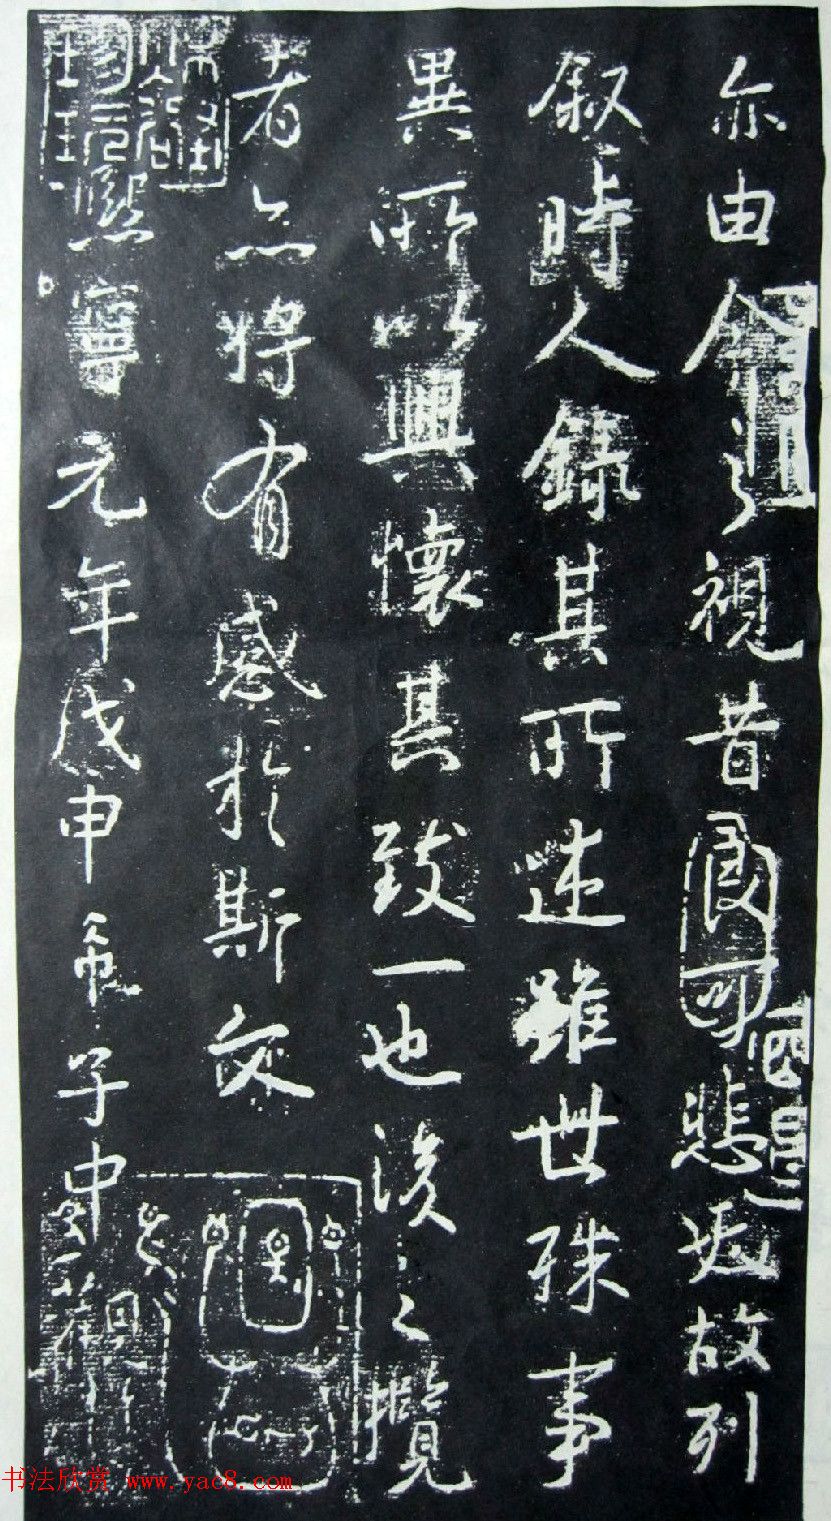 亦由今之視昔良可悲也故列
叙時人錄其所述雖世殊事
異所以興懷其致一也後之攬
者亦將有感於斯文
熙寧元年戊申
子中觀
书法欣赏 www.yac8.com